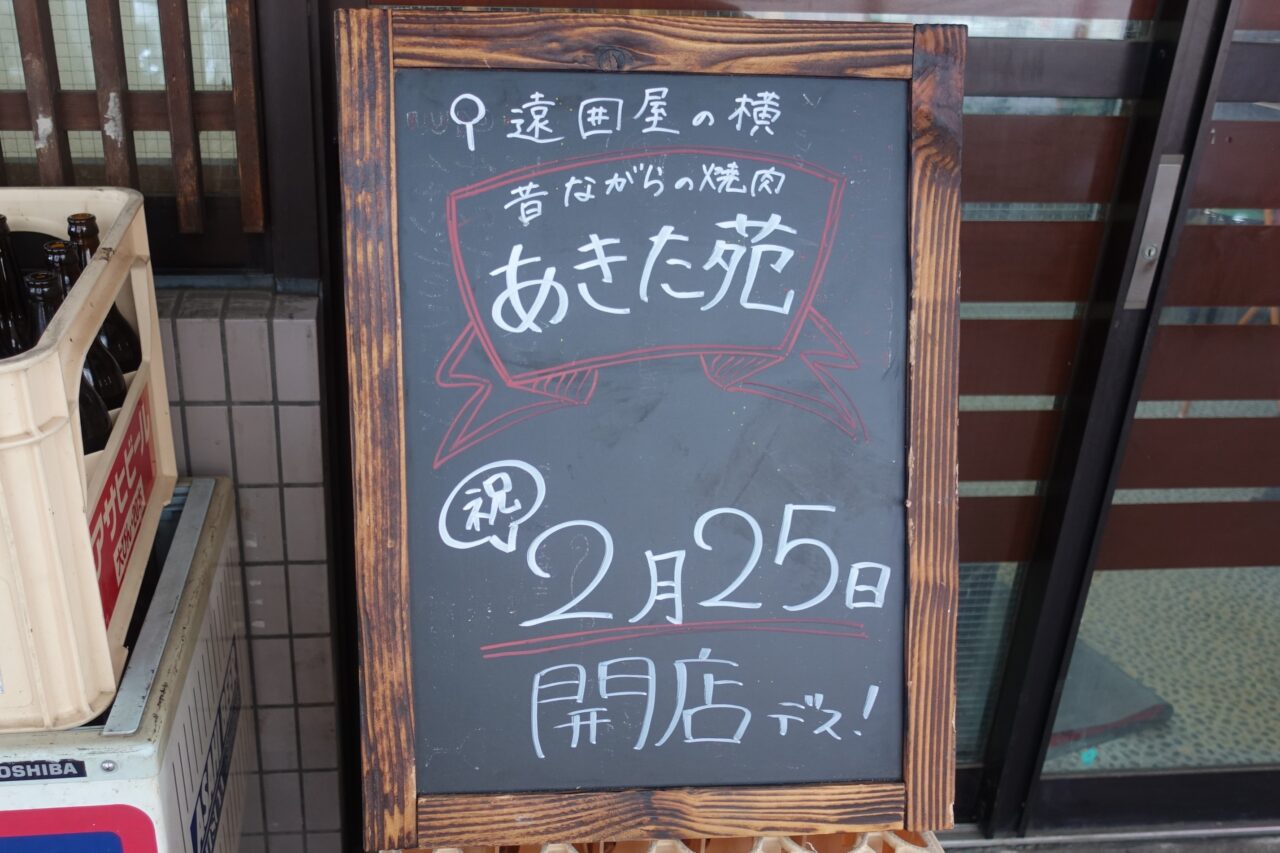 遠囲屋の横
昔ながらの焼肉
あきた苑
祝
2月25日
開店デス!
アサヒビール
TOSHIBA